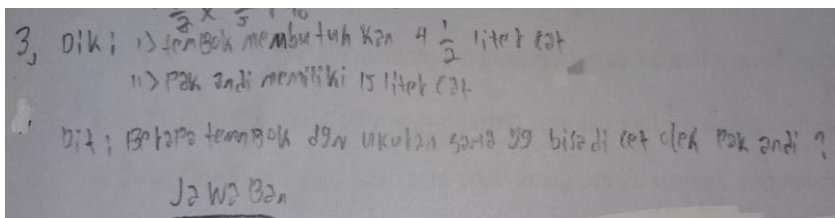 3, Dik : 1) tembok membutuhkan 4 1/2 liter cat
11) Pak andi memiliki 15 liter cat
Dit : Berapa tembok dgn ukuran sama yg bisa di cet oleh Pak andi ?
JaWaBan